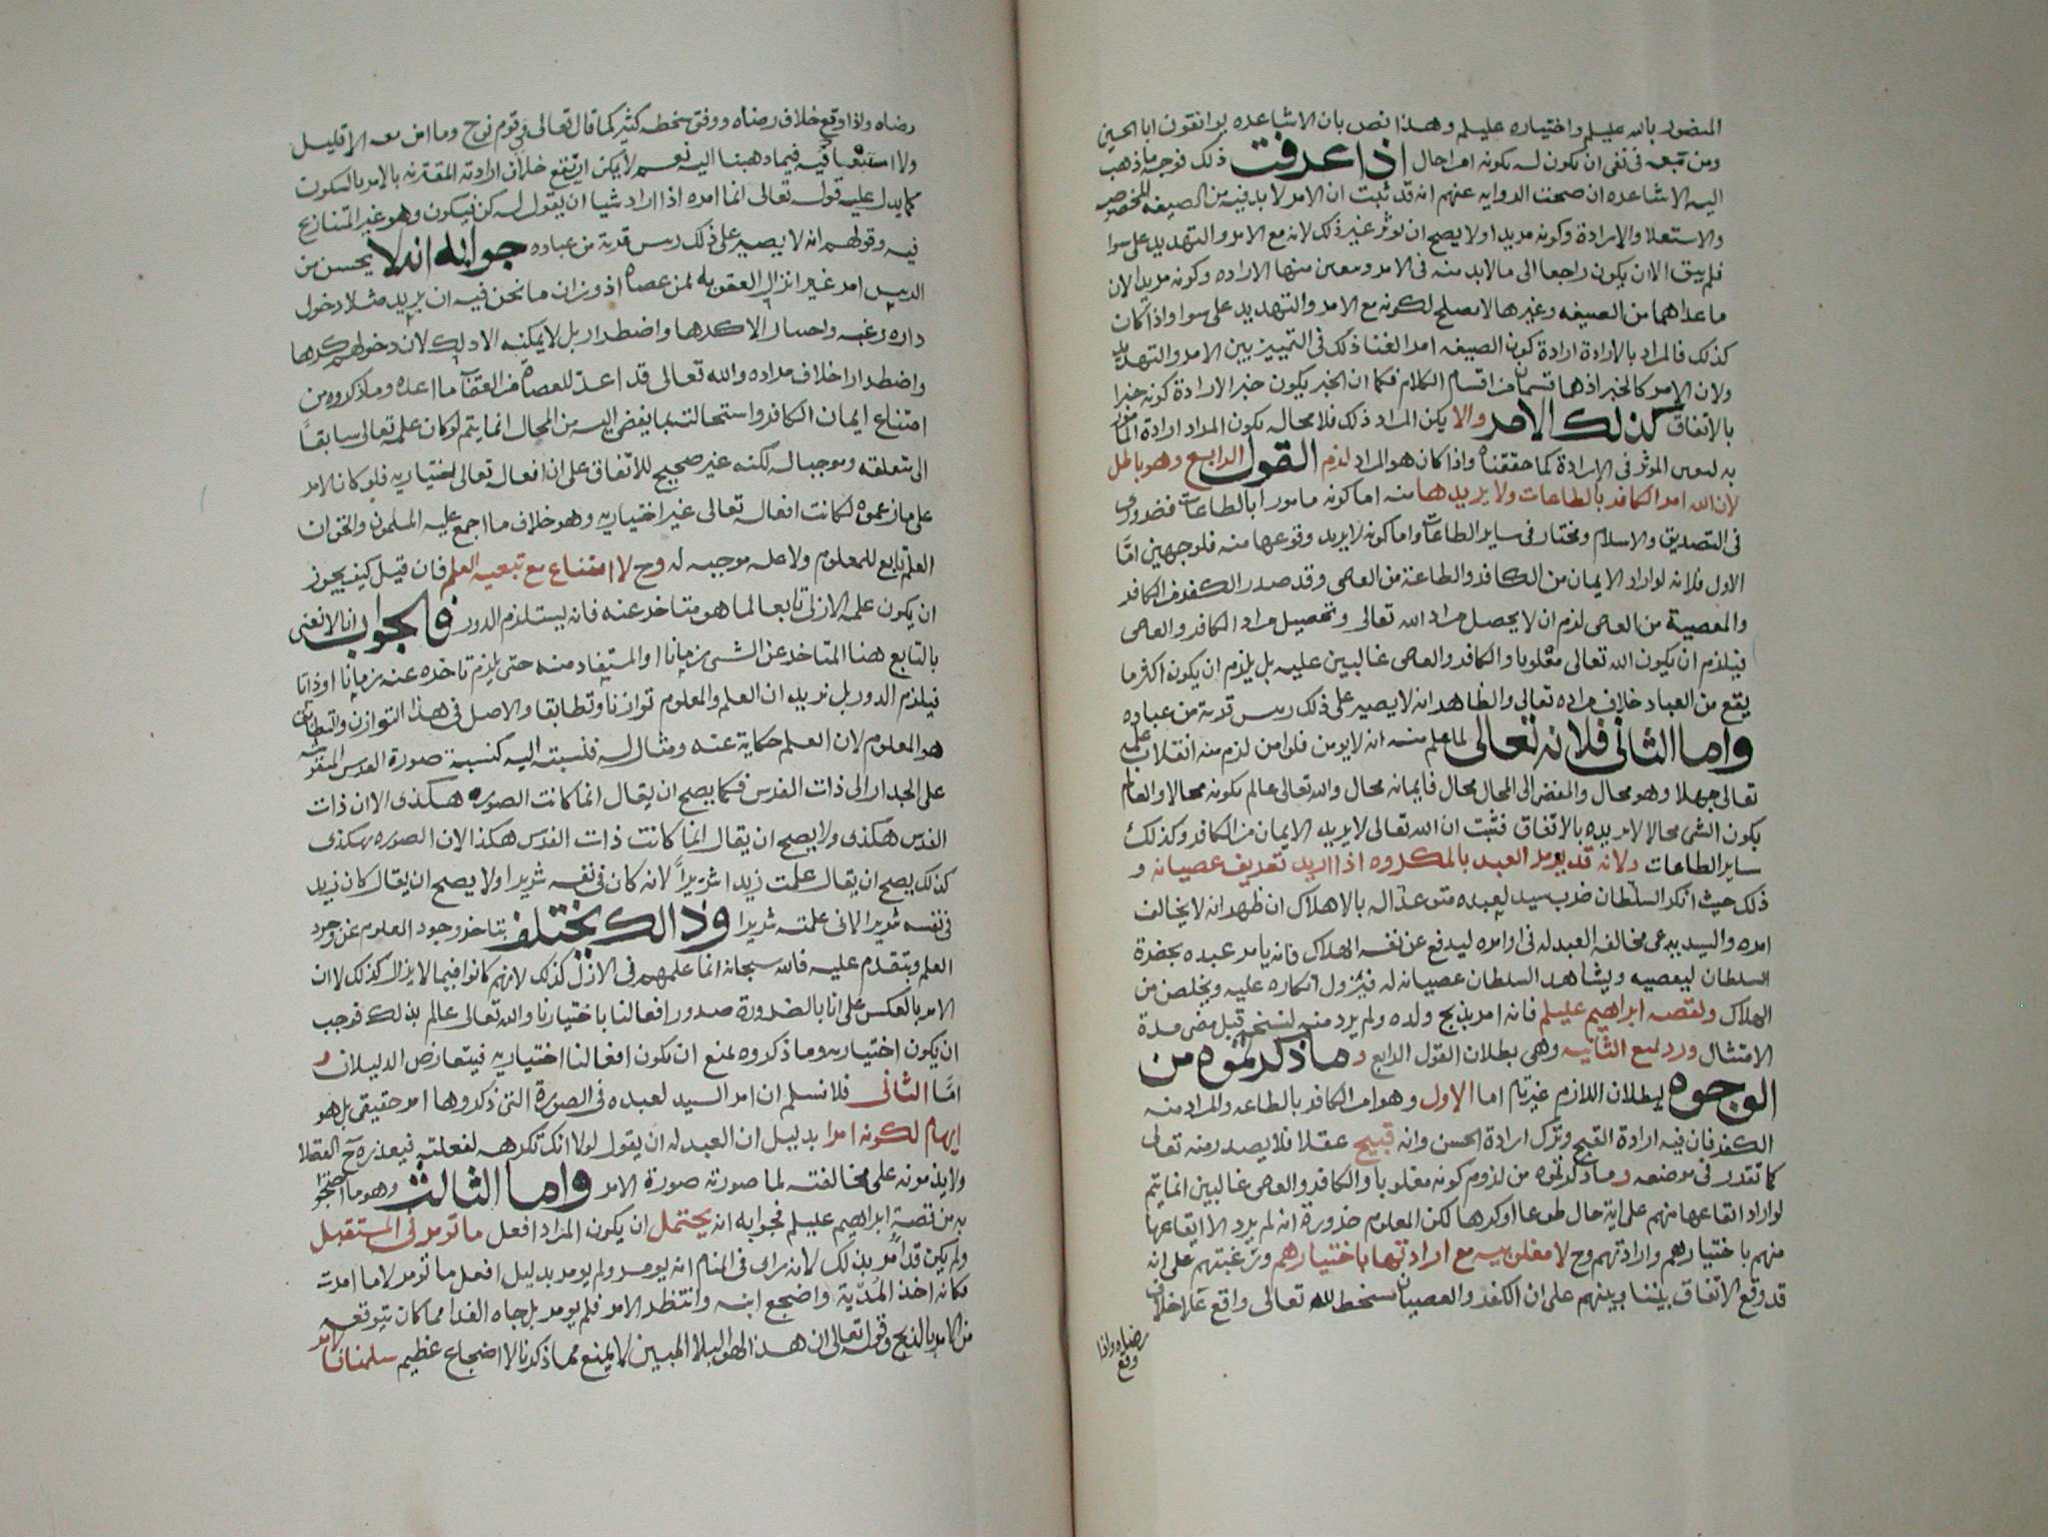 المنصور بالله عليلم واختياره عليلم وهذا نص بان الاشاعره يوافقون ابا الحسين
ومن تبعه فى نفى ان يكون له بكونه امرا حال اذا عرفت ذلك فوجه ما ذهب
اليه الاشاعره ان صحت الروايه عنهم انه قد ثبت ان الامر لا بد فيه من الصيغه المخصوصه
والاستعلا والارادة وكونه مريدا ولا يصح ان يوثر غير ذلك لانه مع الامر والتهديد على سوا
فلم يبق الا ان يكون راجعا الى ما لابد منه فى الامر ومعين منها الاراده وكونه مريدا لان
ما عداهما من الصيغه وغيرها لا يصلح لكونه مع الامر والتهديد على سوا واذا كان
كذلك فالمراد بالارادة ارادة كون الصيغه امرا لغنا ذلك فى التمييز بين الامر والتهديد
ولان الامر كالخبر اذ هما قسمان من اقسام الكلام فكما ان الخبر يكون خبرا لارادة كونه خبرا
بالاتفاق كذلك الامر والا يكن المراد ذلك فلا محاله يكون المراد ارادة المامور
به لموثر فى الارادة كما حققناه واذا كان هو المراد لزم القول الرابع وهو باطل
لان الله امر الكافر بالطاعات ولا يريدها منه اما كونه مامورا بالطاعات فضرورى
فى التصديق والاسلام ومختار فى ساير الطاعات واما كونه لا يريد وقوعها منه فلوجهين امّا
الاول فلانه لو اراد الايمان من الكافر والطاعة من العاصى وقد صدر الكفر من الكافر
والمعصية من العاصى لزم ان لا يحصل مراد الله تعالى وتحصيل مراد الكافر والعاصى
فيلزم ان يكون الله تعالى مغلوبا والكافر والعاصى غالبين عليه بل يلزم ان يكون اكثر ما
يقع من العباد خلاف مراده تعالى والظاهر انه لا يصبر على ذلك ريس قرية من عباده
واما الثانى فلانه تعالى لما علم منه انه لا يومن فلو امن لزم منه انقلاب علمه
تعالى جهلا وهو محال والمفضى الى المحال محال فايمانه محال والله تعالى عالم بكونه محالا والعالم
بكون الشى محالا لا يريده بالاتفاق فثبت ان الله تعالى لا يريد الايمان من الكافر وكذلك
ساير الطاعات ولانه قد يومر العبد بالمكروه اذا اريد تعريف عصيانه و
ذلك حيث انكر السلطان ضرب سيد لعبده متوعدا له بالاهلاك ان ظهر انه لا يخالف
امره والسيد يدعى مخالفه العبد له فى اوامره ليدفع عن نفسه الهلاك فانه يامر عبده بحضرة
السلطان ليعصيه ويشاهد السلطان عصيانه له فيزول انكاره عليه ويخلص من
الهلاك ولقصه ابراهيم عليلم فانه امر بذبح ولده ولم يرد منه لنسخه قبل مضى مدة
الامتثال ورد لمنع الثانيه وهى بطلان القول الرابع و ما ذكرتموه من
الوجوه لبطلان اللازم غير تام اما الاول وهو امر الكافر بالطاعه والمراد منه
الكفر فان فيه ارادة القبح وترك ارادة الحسن وانه قبيح عقلا فلا يصدر منه تعالى
كما تقدر فى موضعه وما ذكرتموه من لزوم كونه مغلوبا والكافر والعاصى غالبين انما يتم
لو اراد ايقاعها منهم على اية حال طوعا او كرها لكن المعلوم ضرورة انه لم يرد الا ايقاعها
منهم باختيارهم وارادتهم وح لا مغلوبيه مع ارادتها باختيارهم ورغبتهم على انه
قد وقع الاتفاق بيننا وبينهم على ان الكفر والعصيان بسخط لله تعالى واقع على خلاف
رضاه واذا
وقع
رضاه واذا وقع خلاف رضاه ووفق سخطه كثير كما قال تعالى فى قوم نوح وما امن معه الا قليل
ولا استبعاد فيه فيما ذهبنا اليه نعم لا يمكن ان يقع خلاف ارادته المقترنه بالامر بالتكوين
كما يدل عليه قوله تعالى انما امره اذا اراد شيا ان يقول له كن فيكون وهو غير المتنازع
فيه وقولهم انه لا يصبر على ذلك ريس قرية من عباده جوابه انه لا يحسن من
الريس امر غير انزال العقوبه لمن عصاه اذ وزان ما نحن فيه ان يريد مثلا دخول
داره رغبه واختيارا لا كرها واضطرارا بل لا يمكنه الا ذلك لان دخولهم كرها
واضطرارا خلاف مراده والله تعالى قد اعدّ للعصاة من العقاب ما اعده وما ذكروه من
امتناع ايمان الكافر واستحالته بما يفضى اليه من المحال انما يتم لو كان علمه تعالى سابقاً
الى متعلقه وموجبا له لكنه غير صحيح للاتفاق على ان افعاله تعالى اختياريه فلو كان الامر
على ما زعموه لكانت افعاله تعالى غير اختياريه وهو خلاف ما اجمع عليه المسلمون والحق ان
العلم تابع للمعلوم ولا عله موجبه له وح لا امتناع مع تبعيه العلم فان قيل كيف يجوز
ان يكون علمه الازلى تابعا لما هو متاخر عنه فانه يستلزم الدور فالجواب انا لا نعنى
بالتابع هنا المتاخر عن الشى زمانا او المستفاد منه حتى يلزم تاخره عنه زمانا او ذاتا
فيلزم الدور بل نريد ان العلم والمعلوم توازنا وتطابقا والاصل فى هذا التوازن والتطابق
هو المعلوم لان العلم حكاية عنه ومثال له فنسبته اليه كنسبة صورة الفرس المنقوشه
على الجدار الى ذات الفرس فكما يصح ان يقال انما كانت الصوره هكذى لان ذات
الفرس هكذى ولا يصح ان يقال انما كانت ذات الفرس هكذا لان الصوره هكذى
كذلك يصح ان يقال علمت زيدا شريراً لانه كان فى نفسه شريرا ولا يصح ان يقال كان زيد
فى نفسه شريرا لانى علمته شريرا وذالك يختلف بتاخر وجود المعلوم عن وجود
العلم وبتقدم عليه فالله سبحانه انما علمهم فى الازل كذلك لانهم كانوا فيما لا يزال كذلك لا ان
الامر بالعكس على انا بالضرورة صدور افعالنا باختيارنا والله تعالى عالم بذلك فوجب
ان يكون اختياريه وما ذكروه لمنع ان يكون افعالنا اختياريه فيتعارض الدليلان و
امّا الثانى فلا نسلم ان امر السيد لعبده فى الصورة التى ذكروها امر حقيقى بل هو
ايهام لكونه امرا بدليل ان العبد له ان يقول لولا انك تكرهه لفعلته فيعذره ح العقلا
ولا يذمونه على مخالفته لما صورته صورة الامر واما الثالث وهو ما احتجوا
به من قصة ابراهيم عليلم فجوابه انه يحتمل ان يكون المراد افعل ما تومر فى المستقبل
ولم يكن قد اُمر بذلك لانه راى فى المنام انه يومر ولم يومر بدليل افعل ما تومر لا ما امرت
فكانه اخذ المُدية واضجع ابنه وانتظر الامر فلم يومر بل جاه الفدا مما كان يتوقعه
من الامر بالذبح وقوله تعالى ان هذا لهو البلا المبين لا يمنع مما ذكرنا لا اضجاع عظيم سلمنا انه امر